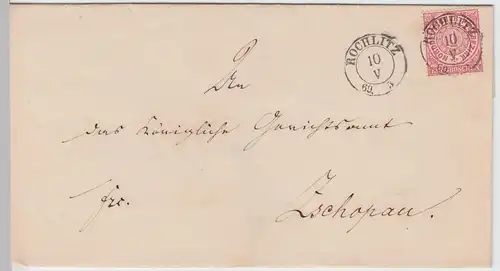 ROCHLITZ
10
V
69 5
ROCHLITZ
10
V
69
An
das Königliche Gerichtsamt
frc. Zschopau.